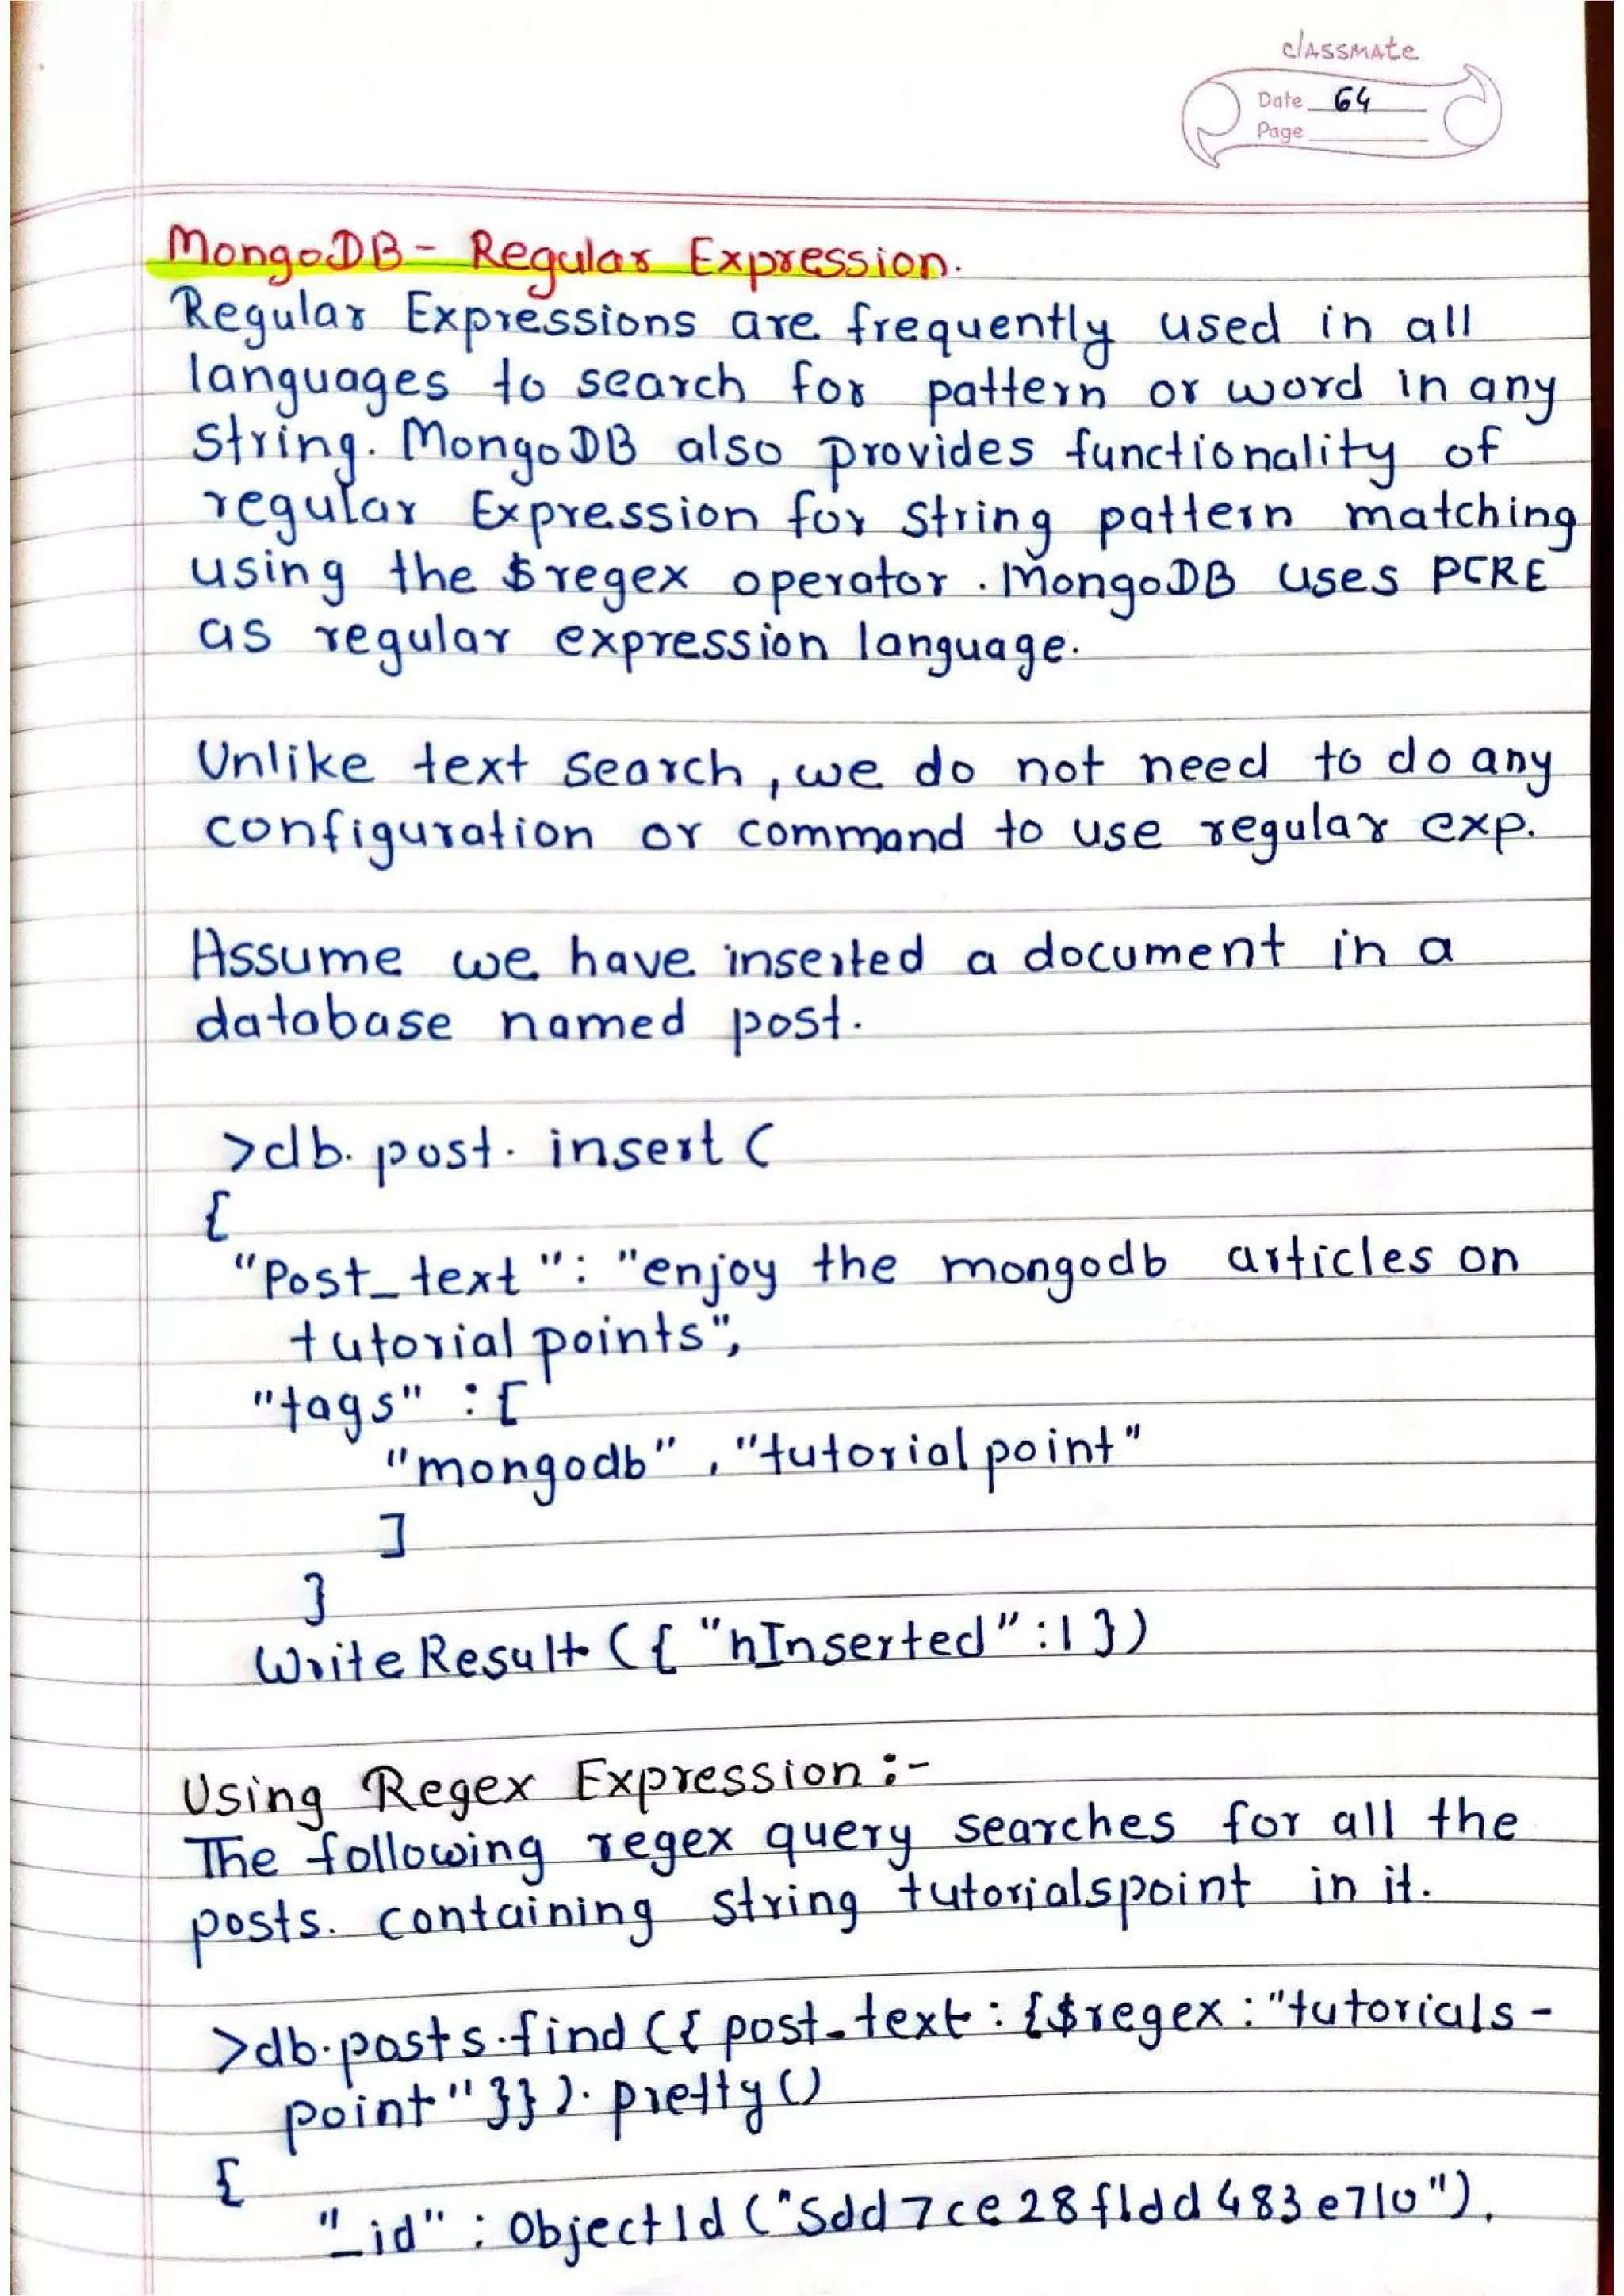 classmate
Date 64
Page
MongoDB - Regular Expression.
Regular Expressions are frequently used in all
languages to search for pattern or word in any
string. MongoDB also provides functionality of
regular Expression for string pattern matching
using the $regex operator. MongoDB uses PCRE
as regular expression language.
Unlike text search, we do not need to do any
configuration or command to use regular exp.
Assume we have inserted a document in a
database named post.
>db. post. insert (
{
"Post_text": "enjoy the mongodb articles on
tutorial points",
"tags" : [
"mongodb", "tutorial point"
]
}
WriteResult ({ "nInserted" : 1 })
Using Regex Expression :-
The following regex query searches for all the
posts. containing string tutorialspoint in it.
>db.posts.find ({ post_text : {$regex : "tutorials-
point" }} ). pretty ()
{
"_id" : ObjectId ("5dd7ce28f1dd483e710"),